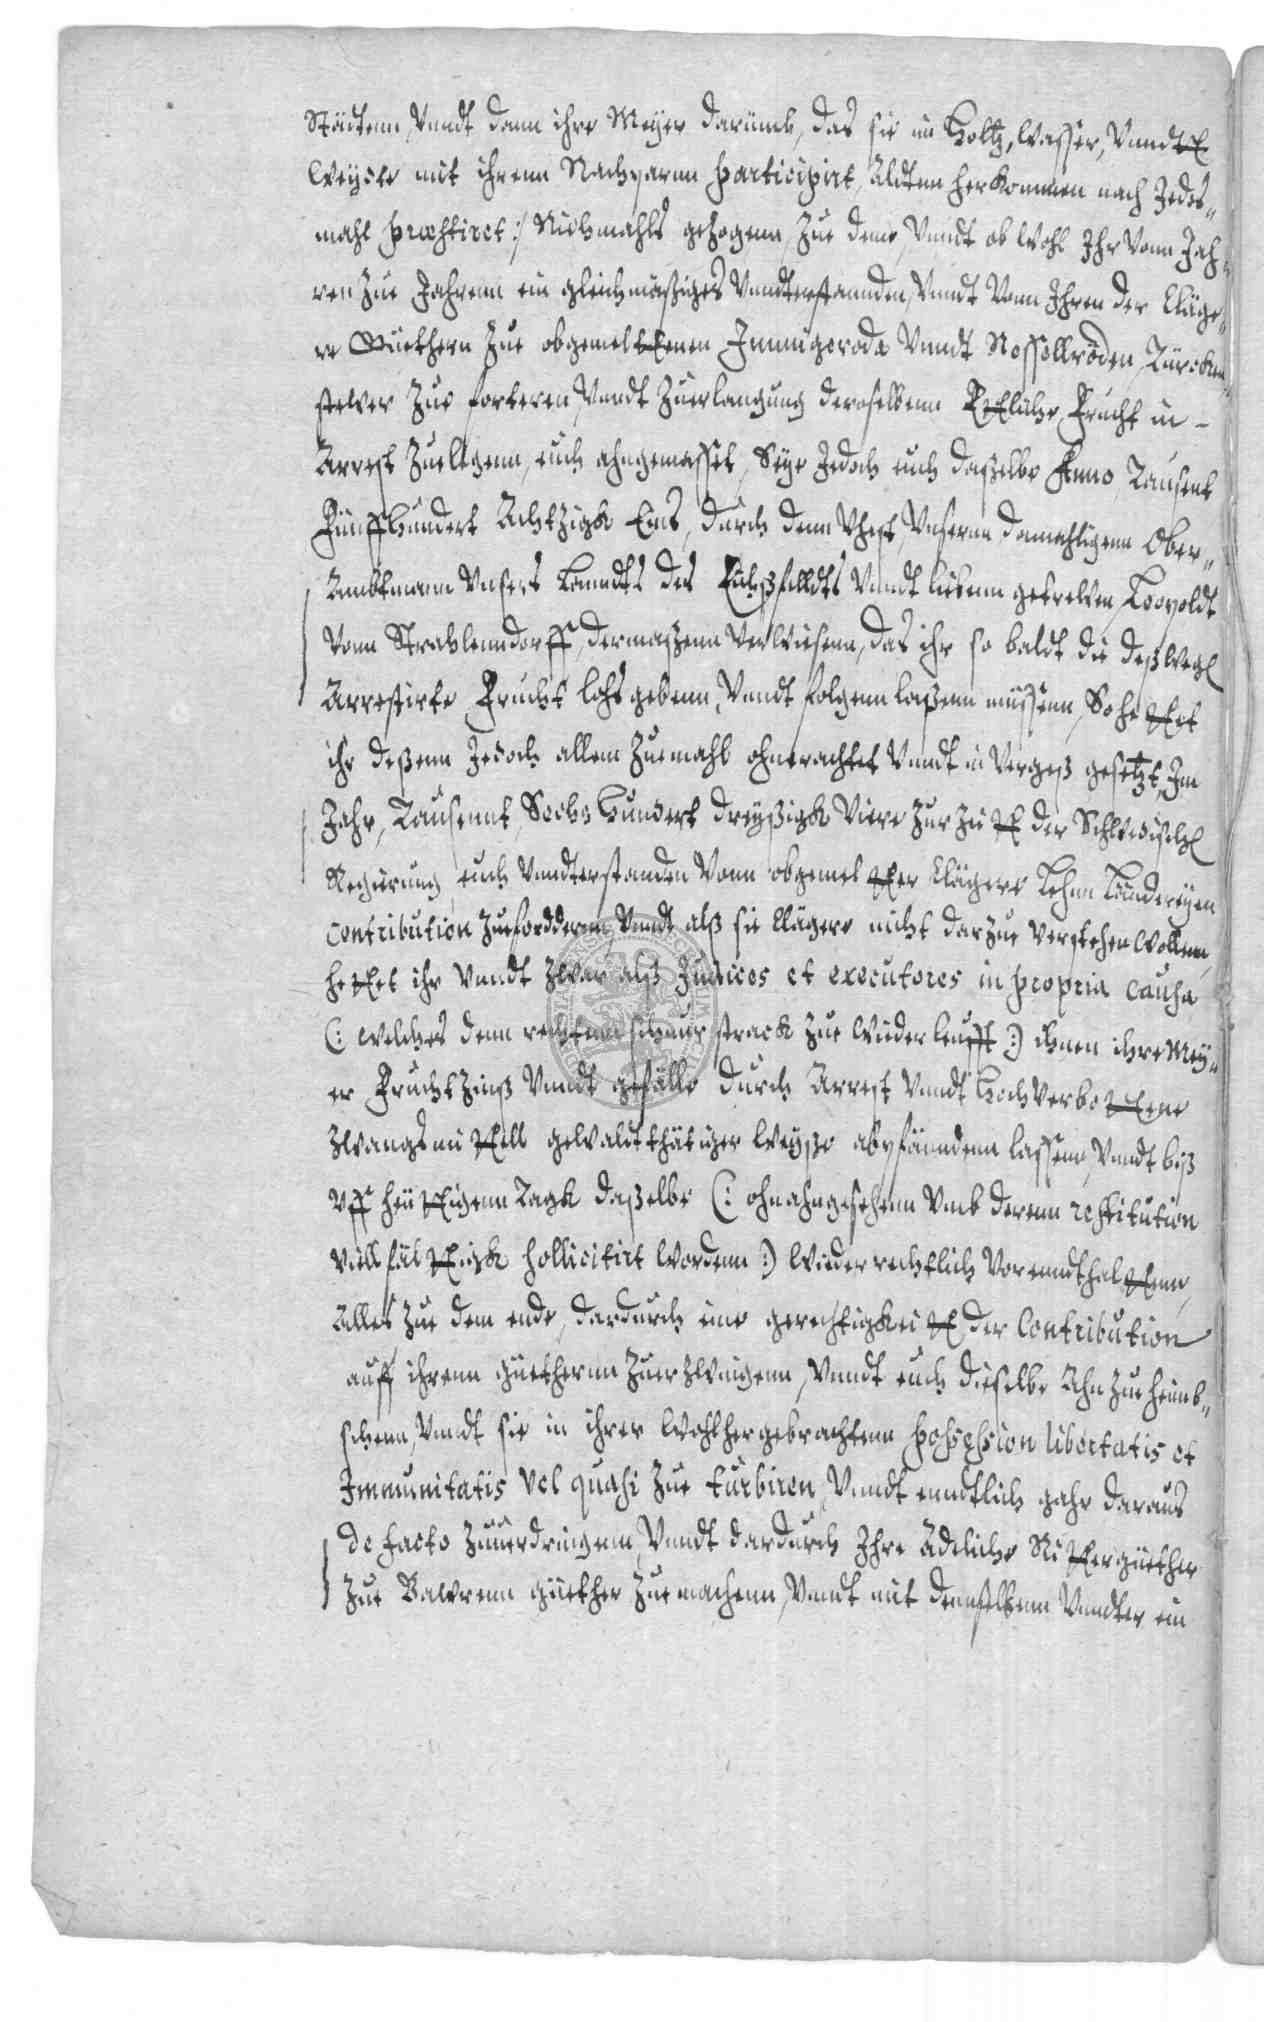 Städtenn, Vnndt dann ihre Meyer darumb, das sie im Holtz, Wasser, Vnndt
Weyde mit ihrenn Nachparnn participirt, Altem herkommen nach Jedes„
mahl præstiret :/ Niehmahls gezogenn, Zue deme, Vnndt ob wohl Ihr Vonn Jah„
ren Zue Jahrenn ein gleichmäßiges Vndterstannden, Vnndt Vonn Ihren der Cläge„
re Guethern Zue obgemelttenen Immigeroda Vnndt Nesselröden, Türcken„
stewer Zue forderen, Vnndt Zuerlangung derselbenn Ettliche Frucht in
Arrest Zuelegenn, euch ahngemasset, Seye Jedoch euch daßelbe Anno, Tausent
Fünffhundert Achtzigk Eins, durch denn Vhest, Vnsernn damahligenn Ober„
Ambtmann Vnsers Lanndts des Eichßfelldts Vnndt liebenn getrewen, Leopoldt
Vonn Strahlenndorff, dermaßenn Verwiesenn, das ihr so baldt die deßwegen
Arrestirte Frucht lohs gebenn, Vnndt folgenn laßenn müssenn, So hettet
ihr deßenn Jedoch allem Zuemahl ohnerachtet Vnndt in Vergeß gesetzt, Im
Jahr, Tausennt, Sechs Hundert dreyßigk Viere Zur Zeitt der Schwedischen
Regierung, euch Vnndterstanden Vonn obgemeltter Clägere Lehen Ländereyen
Contribution Zuefordderenn, Vnndt alß sie Clägere nicht darzue Verstehen wollenn,
hettet ihr Vnndt Zwar alß Judices et executores in propria causa
(: welches denn rechtenn schnurstrack Zue wieder leufft :) ihnen ihre Mey„
er Frucht Zinß Vnndt gefälle durch Arrest Vnndt Hochverbottene
Zwangsmittell gewalttthätiger weyße abpfänndenn lassenn, Vnndt biß
Vff heüttigenn Tagk daßelbe (: ohnahngesehenn Vmb derenn restitution
Viellfälttigk sollicitirt wordenn :) wiederrechtlich Vorenndthalttenn,
Alles Zue dem ende, dardurch eine gerechtigkeitt der Contribution
auff ihrenn güethernn Zuerzwingenn, Vnndt euch dieselbe Ahn Zue heimb„
schenn, Vnndt sie in ihrer wohlhergebrachtenn possession libertatis et
Immunitatis vel quasi Zue turbiren, Vnndt enndtlich gahr daraus
de facto Zuuerdringenn, Vnndt dardurch Ihre Adeliche Rittergüether
Zue Bawrenn güether Zue machenn, Vnndt mit dennselbenn Vnndter ein